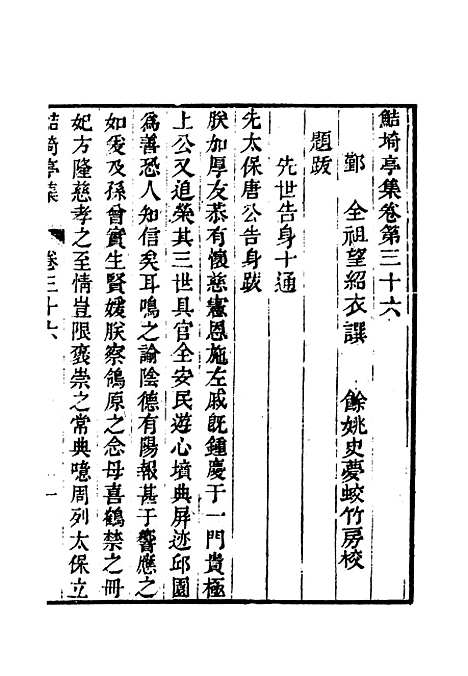 鮚埼亭集卷第三十六
鄞　全祖望紹衣譔　餘姚史夢蛟竹房校
題跋
先世告身十通
先太保唐公告身跋
朕加厚友恭有懷慈憲恩施左戚旣鍾慶于一門貴極
上公又追榮其三世具官全安民遊心墳典屏迹邱園
爲善恐人知信矣耳鳴之諭陰德有陽報甚于響應之
如爰及孫曾實生賢媛朕察鴒原之念母喜鶴禁之冊
妃方隆慈孝之至情豈限褒崇之常典噫周列太保立
鮚埼亭集　卷三十六　一